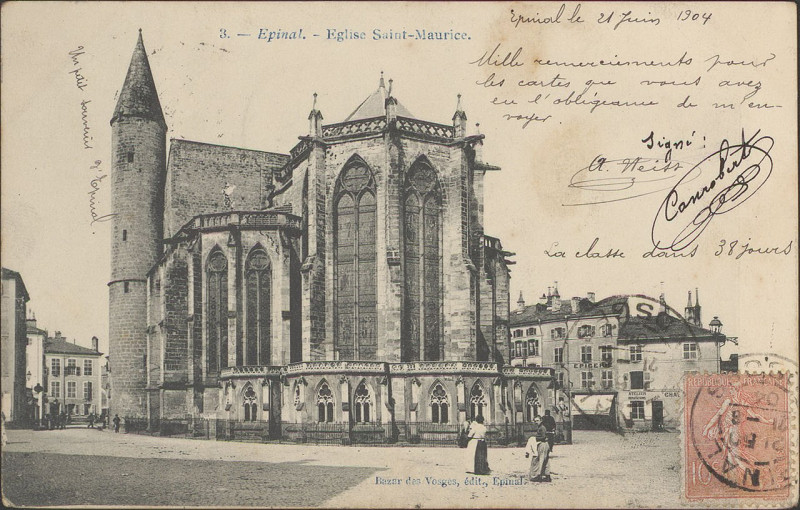 3. — Epinal. - Eglise Saint-Maurice.
Epinal le 21 Juin 1904
Mille remerciements pour
les cartes que vous avez
eu l'obligeance de m'en-
voyer.
Signé :
A. Weiss
Canrobert
La classe dans 38 jours
Un petit souvenir d'Epinal.
EPICERIE
Bazar des Vosges, édit., Epinal.
REPUBLIQUE FRANÇAISE
10